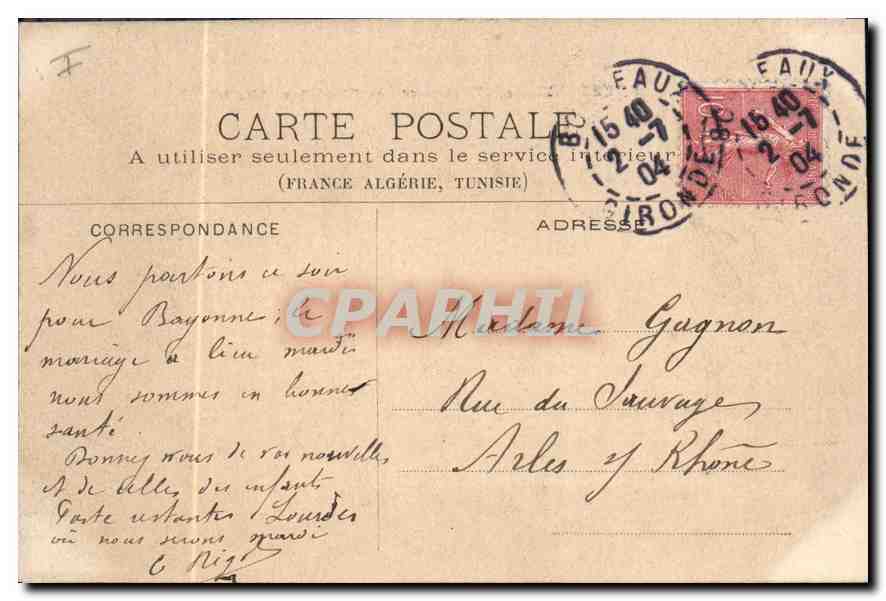 CARTE POSTALE
A utiliser seulement dans le service intérieur
(FRANCE ALGÉRIE, TUNISIE)
BORDEAUX
15 40
2 -7
04
GIRONDE
EAUX
15 40
2 -7
04
GIRONDE
10
CORRESPONDANCE
ADRESSE
Nous partons ce soir
pour Bayonne; le
mariage a lieu mardi
nous sommes en bonne
santé.
Donnez nous de vos nouvelles
et de celles des enfants
Poste restante Lourdes
où nous serons mardi
Madame Gagnon
Rue du Sauvage
Arles s/ Rhône
CPAPHIL